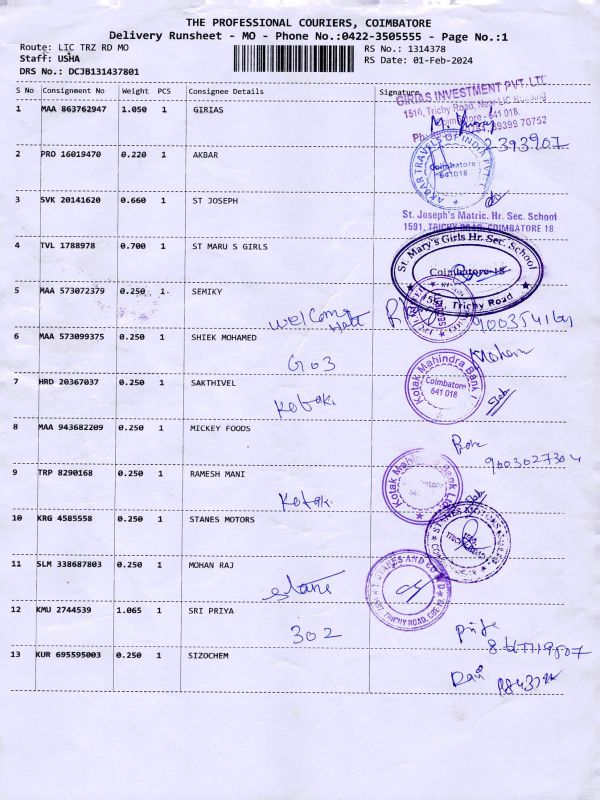 THE PROFESSIONAL COURIERS, COIMBATORE
Delivery Runsheet - MO - Phone No.:0422-3505555 - Page No.:1
Route: LIC TRZ RD MO
RS No.: 1314378
Staff: USHA
RS Date: 01-Feb-2024
DRS No.: DCJB131437801
S No Consignment No Weight PCS Consignee Details Signature
1 MAA 863762947 1.050 1 GIRIAS
GIRIAS INVESTMENT PVT. LTD
1510, Trichy Road, Near LIC Building
Coimbatore - 641 018.
2 PRO 16019470 0.220 1 AKBAR
AKBAR TRAVELS OF INDIA PVT LTD
Coimbatore
641018
3 SVK 20141620 0.660 1 ST JOSEPH
St. Joseph's Matric. Hr. Sec. School
1591, TRICHY ROAD, COIMBATORE 18
4 TVL 1788978 0.700 1 ST MARU S GIRLS
St. Mary's Girls Hr. Sec. School
Coimbatore-18
1591, Trichy Road
5 MAA 573072379 0.250 1 SEMIKY
Welcome
Hall
6 MAA 573099375 0.250 1 SHIEK MOHAMED
G03
7 HRD 20367037 0.250 1 SAKTHIVEL
Kotak
Kotak Mahindra Bank
Coimbatore
641 018
8 MAA 943682209 0.250 1 MICKEY FOODS
9003027304
9 TRP 8290168 0.250 1 RAMESH MANI
Kotak
Kotak Mahindra Bank Ltd
10 KRG 4585558 0.250 1 STANES MOTORS
11 SLM 338687803 0.250 1 MOHAN RAJ
12 KMU 2744539 1.065 1 SRI PRIYA
302
13 KUR 695595003 0.250 1 SIZOCHEM